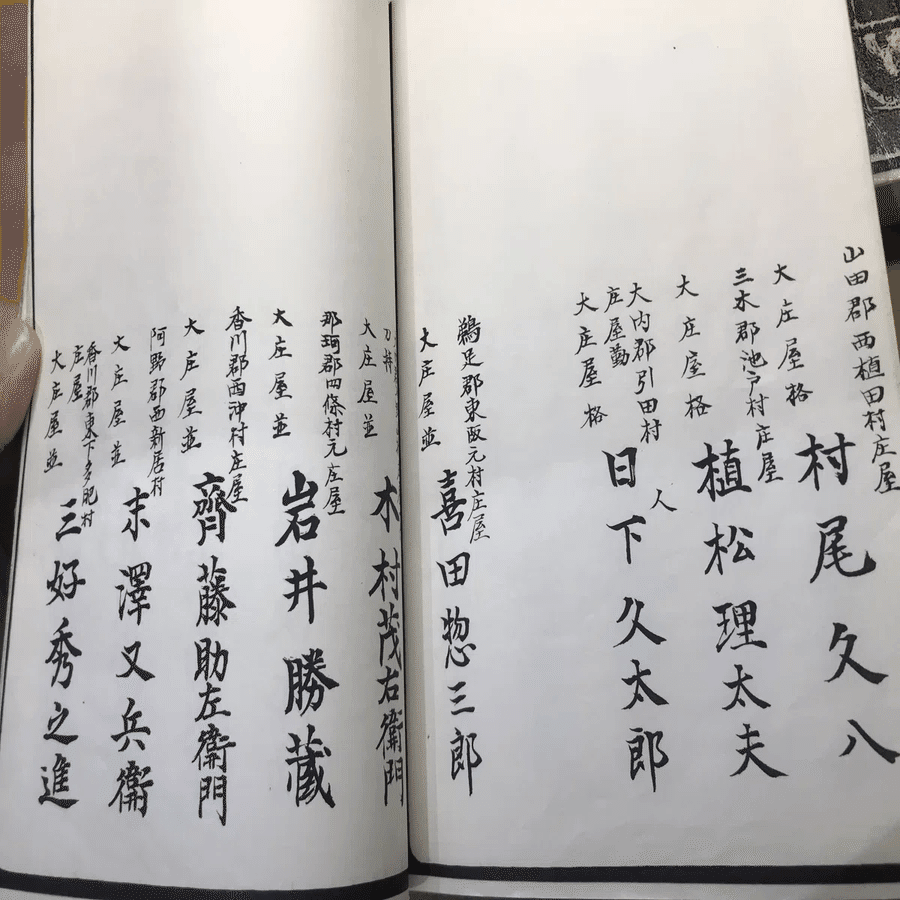 山田郡西植田村庄屋
大庄屋格
村尾久八
三木郡池戸村庄屋
大庄屋格
植松理太夫
大内郡引田村
庄屋勤人
大庄屋格
日下久太郎
鵜足郡東坂元村庄屋
大庄屋並
喜田惣三郎
刀持
大庄屋並
木村茂右衛門
那珂郡四條村元庄屋
大庄屋並
岩井勝蔵
香川郡西沖村庄屋
大庄屋並
齊藤助左衛門
阿野郡西新居村
大庄屋並
末澤又兵衛
香川郡東下多肥村
庄屋
大庄屋並
三好秀之進